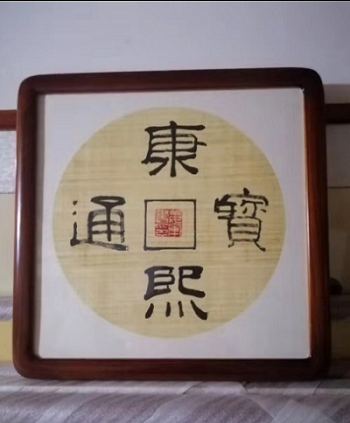 康熙
通寶